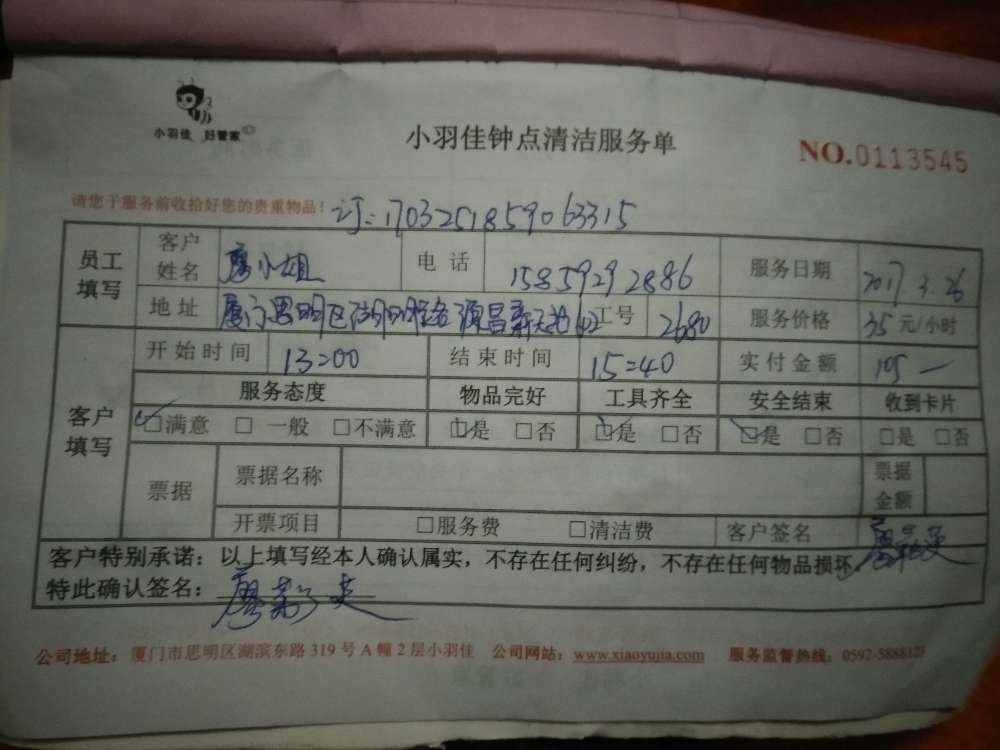 小羽佳 好管家
小羽佳钟点清洁服务单
NO.0113545
请您于服务前收拾好您的贵重物品!
订:1703251859063315
员工填写 客户姓名 廖小姐 电话 15859292886 服务日期 2017.3.26
地址 厦门思明区 源昌新天地 工号 2680 服务价格 35元/小时
客户填写 开始时间 13:00 结束时间 15:40 实付金额 105
服务态度 物品完好 工具齐全 安全结束 收到卡片
☑满意 □一般 □不满意 ☑是 □否 ☑是 □否 ☑是 □否 □是 □否
票据 票据名称 票据金额
开票项目 □服务费 □清洁费 客户签名 廖
客户特别承诺:以上填写经本人确认属实,不存在任何纠纷,不存在任何物品损坏
特此确认签名: 廖
公司地址:厦门市思明区湖滨东路319号A幢2层小羽佳 公司网站:www.xiaoyujia.com 服务监督热线:0592-5888123